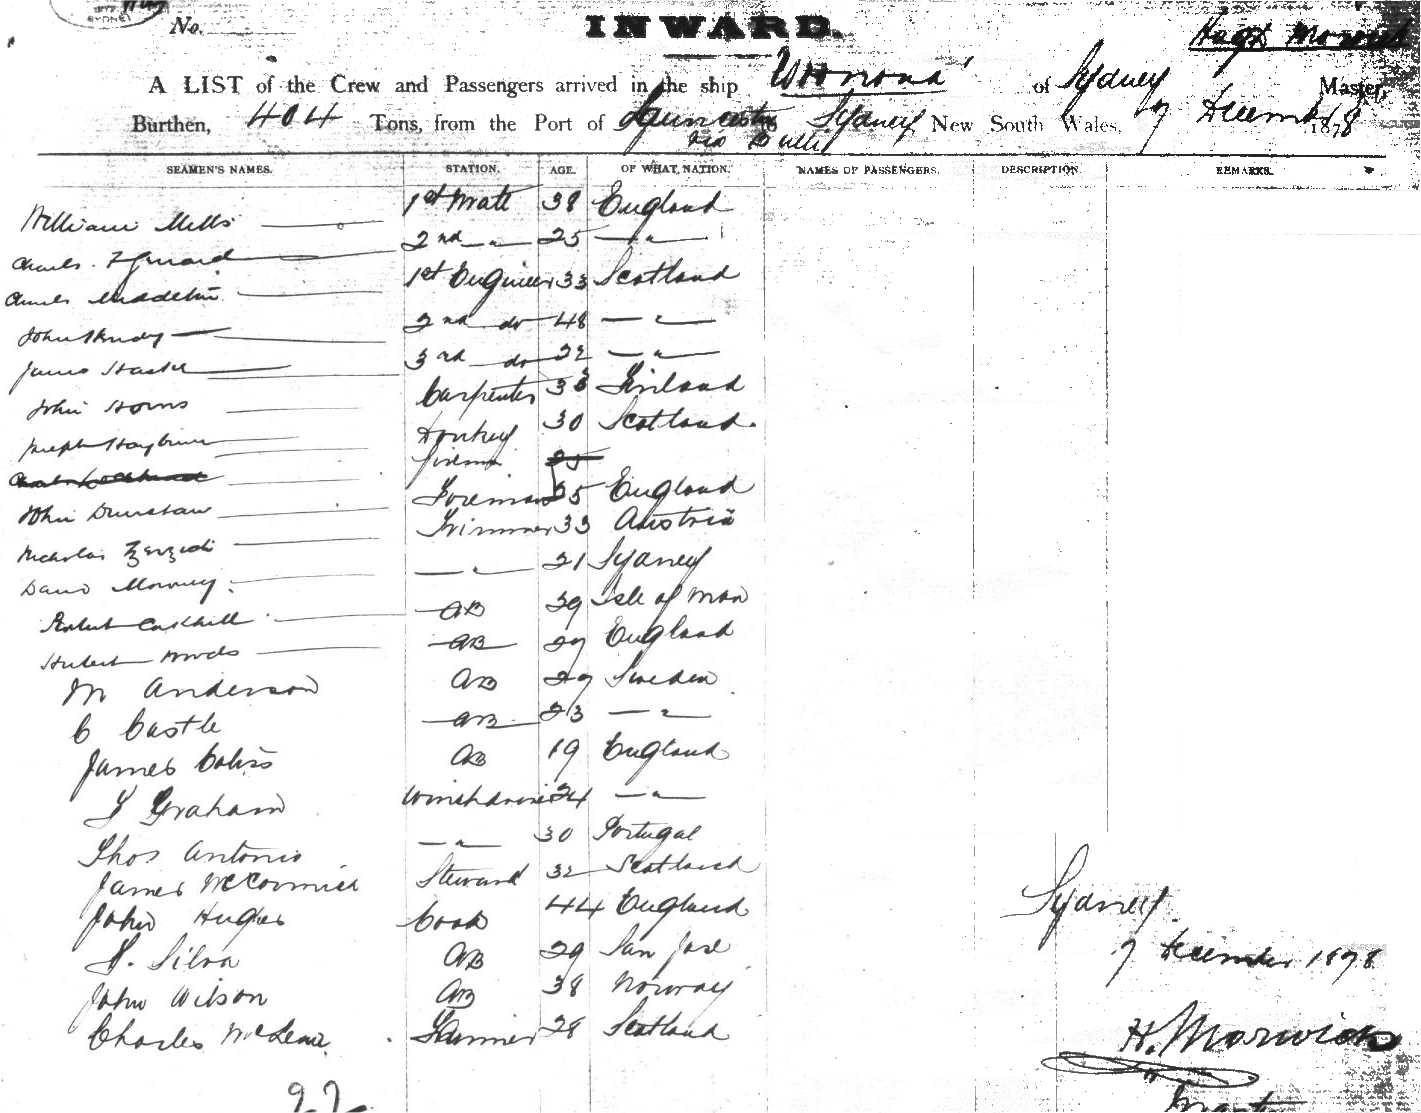 1877
SYDNEY
No.
INWARD.
Hugh Morwick
A LIST of the Crew and Passengers arrived in the ship "Woonona" of Sydney Master,
Burthen, 404 Tons, from the Port of to Sydney New South Wales, 7 December 1878
via Bulli
SEAMEN'S NAMES. STATION. AGE. OF WHAT NATION. NAMES OF PASSENGERS. DESCRIPTION. REMARKS.
William Mills 1st Mate 38 England
Charles 2nd — " — 25 — " —
1st Engineer 33 Scotland
John 2nd do 48 — " —
James 3rd do 22 — " —
John Carpenter Finland
Joseph Donkey 30 Scotland
firema 25
John Dunstan Foreman 25 England
Nicholas Trimmer 33 Austria
David — " — 21 Sydney
Robert AB 29 Isle of Man
Hubert Woods AB 27 England
M Anderson AB 27 Sweden
C Castle AB 23 — " —
James AB 19 England
Graham Winchdriver 24 — " —
Thos Antonio — " — 30 Portugal
James McCormick Steward 32 Scotland
John Hughes Cook 44 England
S. Silva AB 29 San Jose
John Wilson AB 38 Norway
Charles McLean 28 Scotland
22
Sydney
7 December 1878
H. Morwick